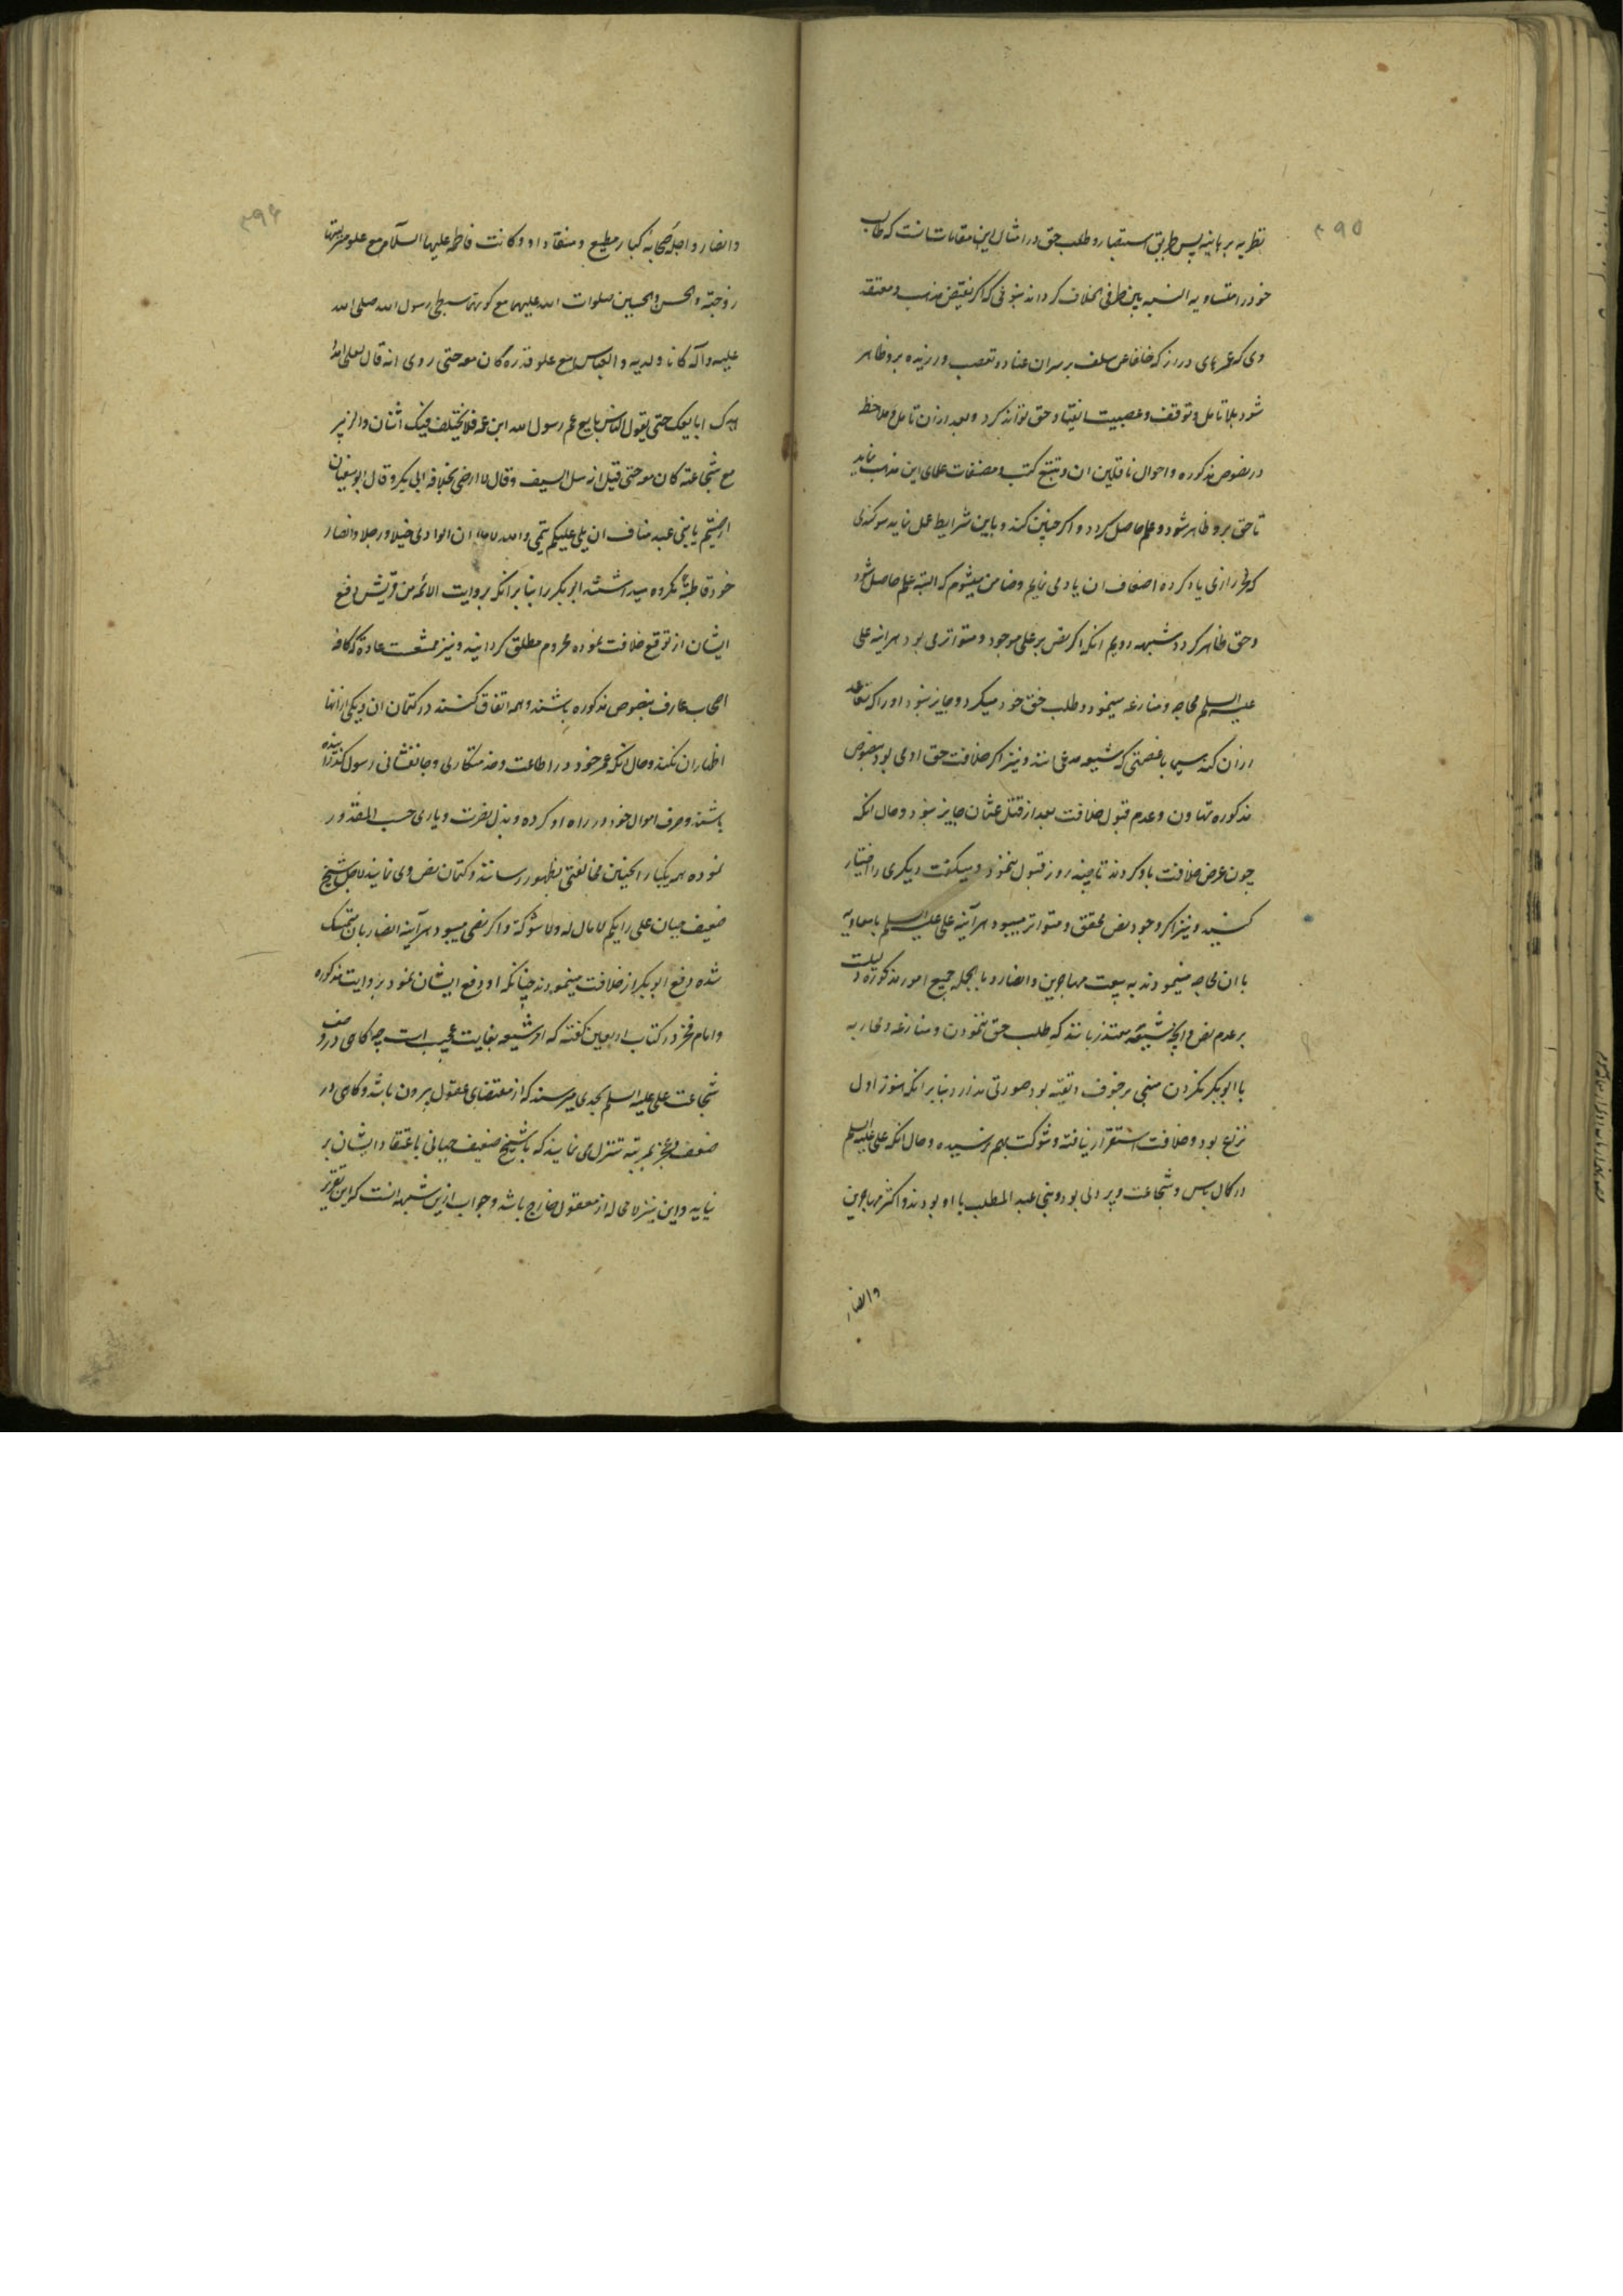 ۳۹۵
نظریه برهانیه پس طریق استبصار و طلب حق در امثال این مقامات انست که طالب
خود را متساویه النسبه بین طرفی الخلاف کرداند بنوعی که اکر نقیض مذهب و معتقد
وی که عمرهای دراز که خلفا عن سلف بر سران عناد و تعصب ورزیده برو ظاهر
شود بلا تامل و توقف و عصبیت انقیاد حق تواند کرد و بعد ازان تامل و ملاحظه
در نصوص مذکوره و احوال ناقلین ان و تتبع کتب و مصنفات علمای این مذهب نماید
تا حق برو ظاهر شود و علم حاصل کردد و اکر چنین کند و باین شرایط عمل نماید سوکندی
که فخر رازی یاد کرده اضعاف ان یاد می نمایم و ضامن میشوم که البته علم حاصل شود
و حق ظاهر کردد شبهه دویم انکه اکر نص بر علی موجود و متواتر می بود هراینه علی
علیه السلم محاجه و منازعه مینمود و طلب حق خود میکرد و جایز نبود او را که تقاعد
ازان کند سیما با عصمتی که شیعه مدعی انند و نیز اکر خلافت حق او می بود بنصوص
مذکوره تهاون و عدم قبول خلافت بعد از قتل عثمان جایز نبود و حال انکه
چون عرض خلافت باو کردند تا چند روز قبول ننمود و میکفت دیکری را اختیار
کنید و نیز اکر وجود نص محقق و متواتر میبود هرآینه علی علیه السلم با معاویه
با ان محاجه مینمود نه به بیعت مهاجرین و انصار و بالجمله جمیع امور مذکوره دلیلست
بر عدم نص و انچه شیعه معتذر بانند که طلب حق ننمودن و منازعه و محاربه
با ابوبکر نکردن مبنی بر خوف و تقیه بود صورتی ندارد بنابر انکه هنوز اول
نزاع بود و خلافت استقرار نیافته و شوکت بهم نرسیده و حال انکه علی علیه السلم
در کمال باس و شجاعت و پردلی بود و بنی عبد المطلب با او بودند و اکثر مهاجرین
وانصار
۳۹۶
وانصار و اجله صحابه کبار مطیع و منقاد او و کانت فاطمه علیها السلام مع علو منزلتها
زوجته والحسن والحسین صلوات الله علیهما مع کونهما سبطی رسول الله صلی الله
علیه وآله کانا ولدیه والعباس مع علو قدره کان معه حتی روی انه قال لعلی امدد
یدک ابایعک حتی یقول الناس بایع عم رسول الله ابن عمه فلا یختلف فیک اثنان والزبیر
مع شجاعته کان معه حتی قیل انه سل السیف وقال لا ارضی بخلافه ابی بکر وقال ابو سفیان
ارضیتم یا بنی عبد مناف ان یلی علیکم تیمی والله لاملان الوادی خیلا ورجلا وانصار
خود قاطبةً مکروه میداشتند ابوبکر را بنا بر انکه بروایت الائمه من قریش دفع
ایشان از توقع خلافت نموده محروم مطلق کردانید و نیز ممتنعست عادة که کافه
اصحاب عارف بنصوص مذکوره باشند و همه اتفاق کنند در کتمان ان و یکی از انها
اظهار ان نکند و حال انکه عمر خود در اطاعت و خدمتکاری و جانفشانی رسول کذرانیده
باشند و صرف اموال خود در راه او کرده و بذل نصرت و یاری حسب المقدور
نموده همه یکبار اینچنین مخالفتی بظهور رسانند و کتمان نص وی نمایند لاجل شیخ
ضعیف جبان علی رایکم لا مال له ولا شوکة و اکر نصی میبود هرآینه انصار بان متمسک
شده دفع ابوبکر از خلافت مینمودند چنانکه او دفع ایشان نمود بروایت مذکوره
و امام فخر در کتاب اربعین کفته که امر شیعه بغایت عجیب است چه کاهی در وصف
شجاعت علی علیه السلم بحدی میرسند که از مقتضای عقول بیرون باشد و کاهی در
ضعف و عجز بمرتبه تنزل می نمایند که با شیخ ضعیف جبانی باعتقاد ایشان بر
نیاید و این نیز لا محاله از معقول خارج باشد و جواب ازین شبهه انست که این تقریر